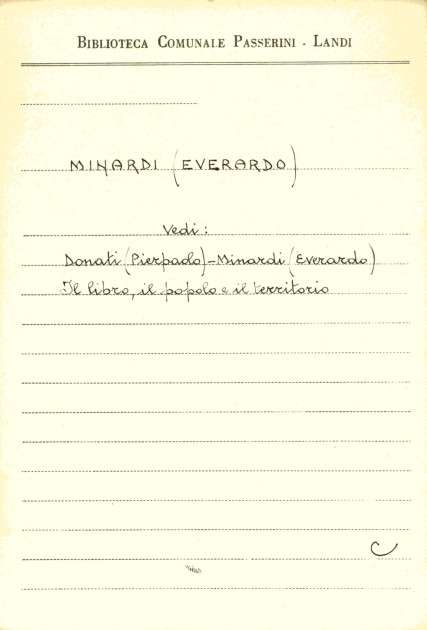 BIBLIOTECA COMUNALE PASSERINI - LANDI
MINARDI (EVERARDO)
Vedi:
Donati (Pierpaolo) - Minardi (Everardo)
Il libro, il popolo e il territorio
C